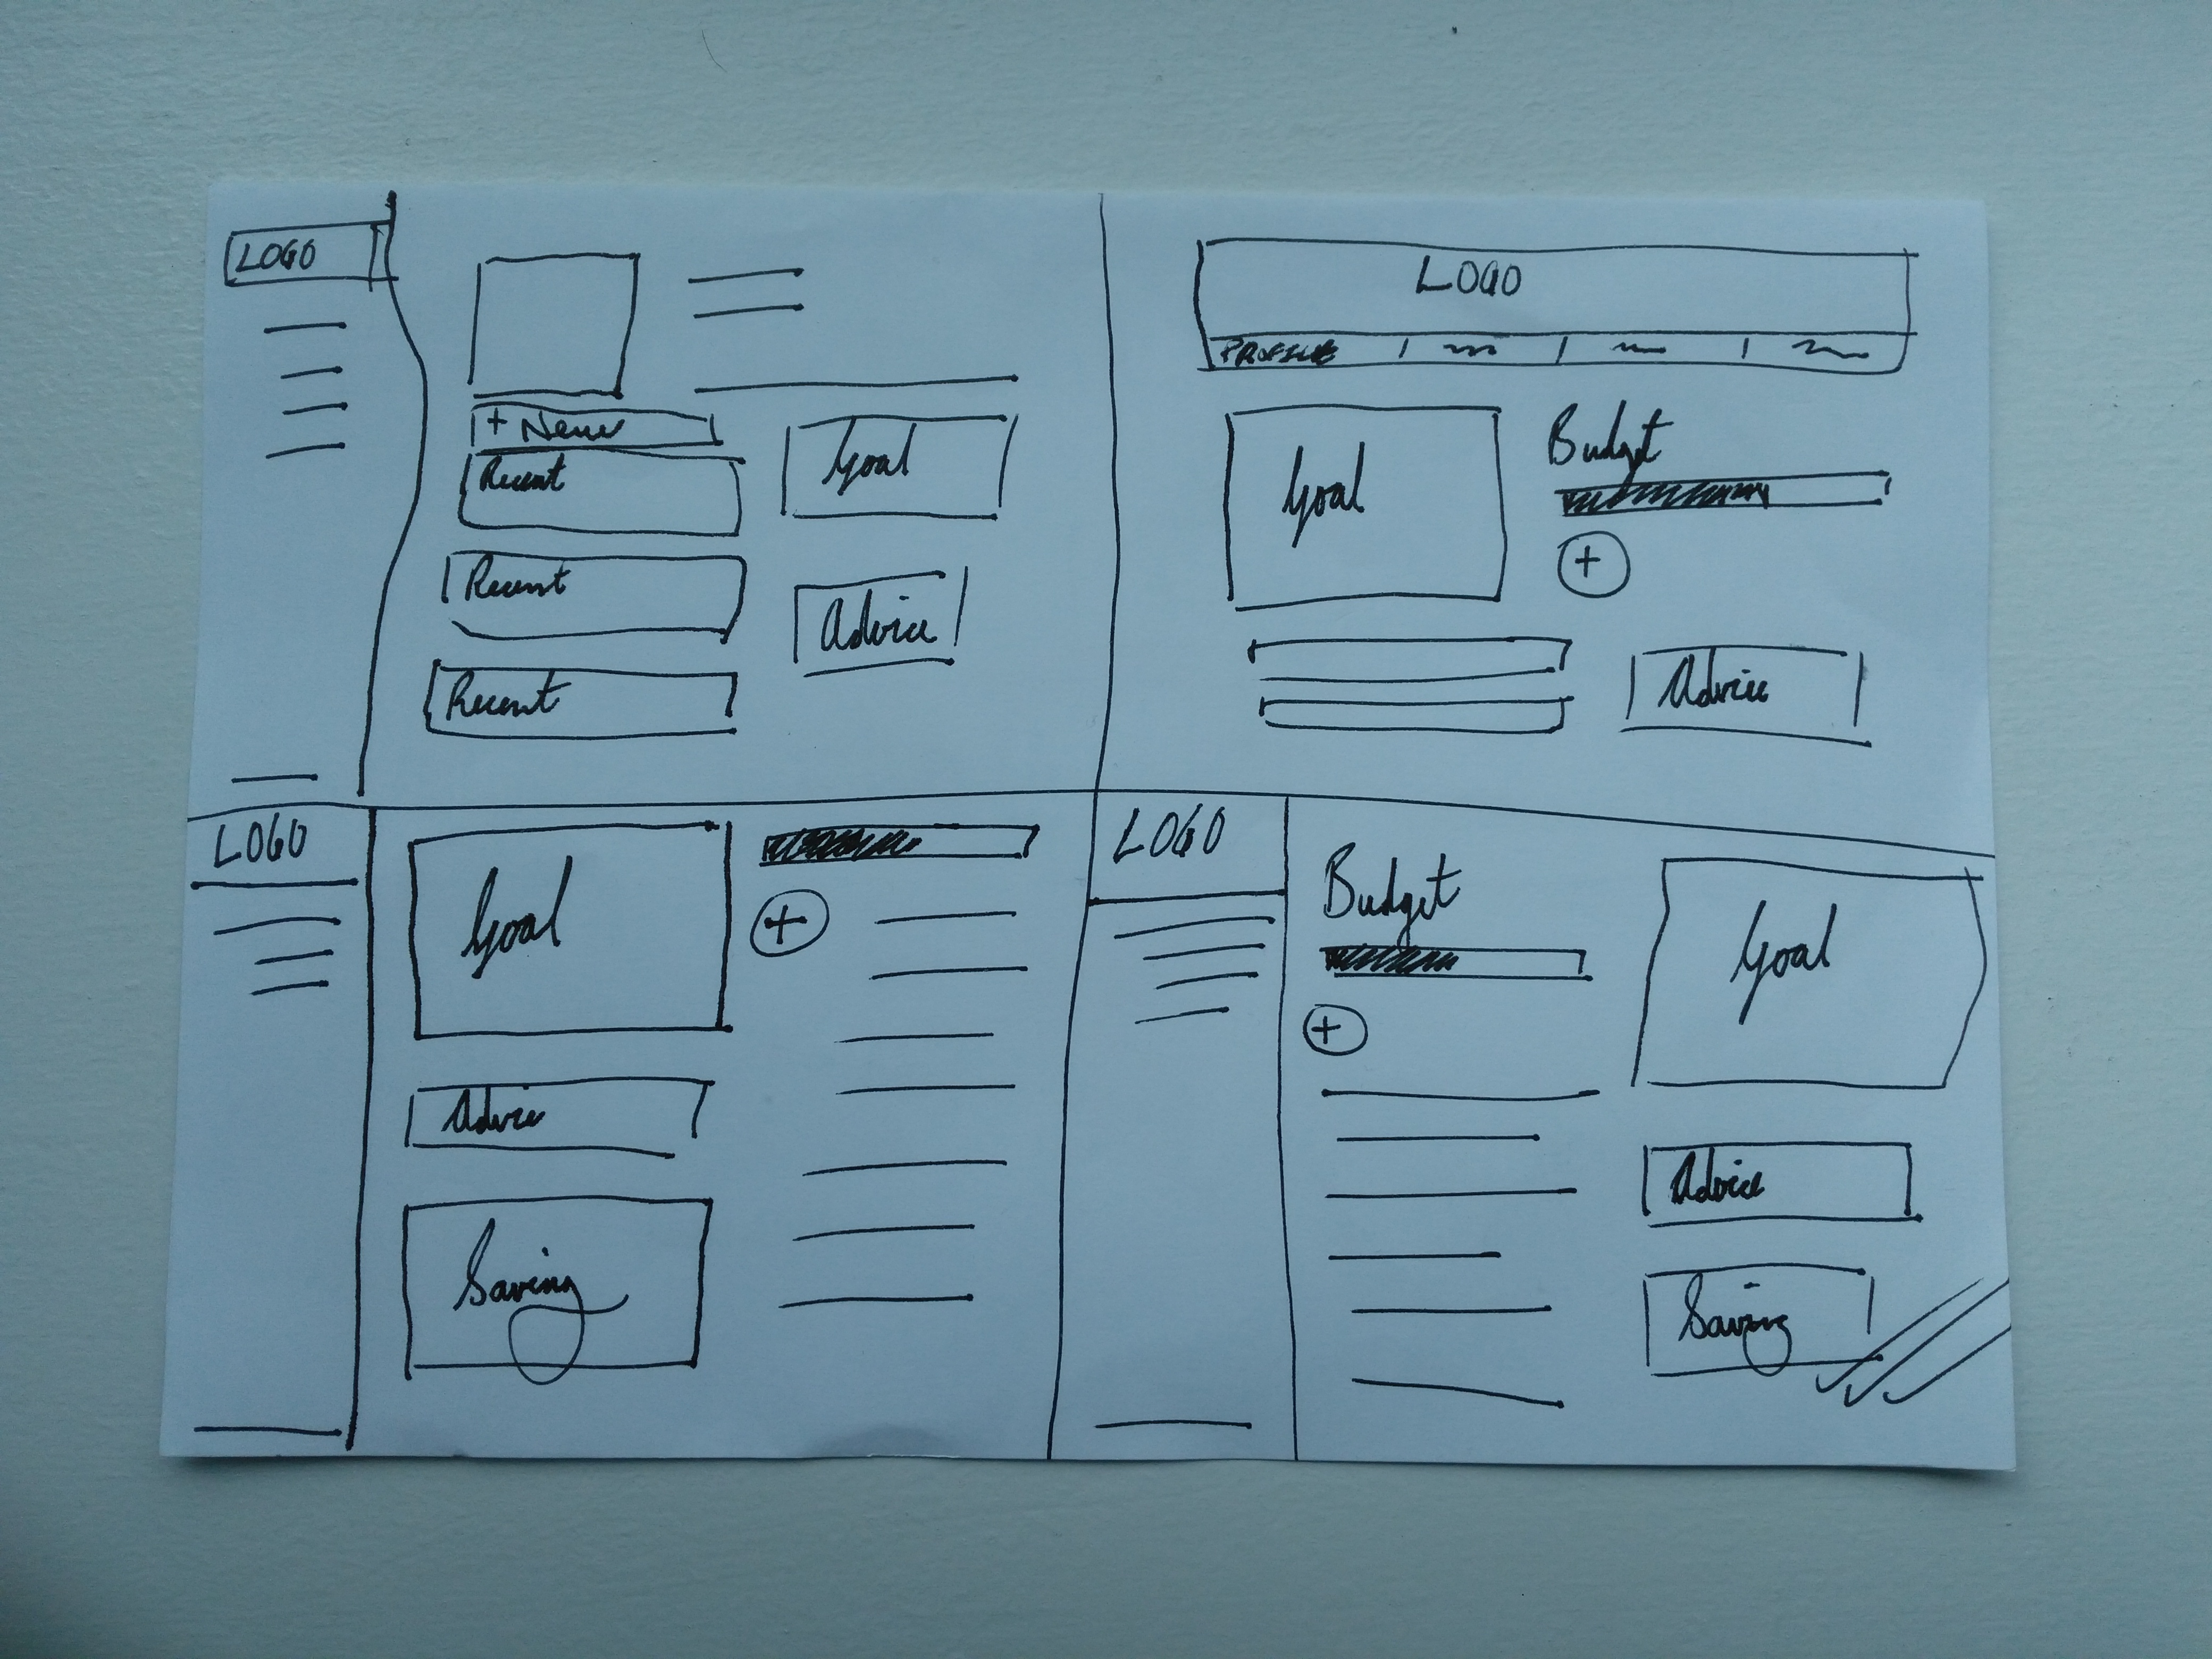 LOGO
+ New
Recent
Goal
Recent
Advice
Recent
LOGO
PROFILE
Goal
Budget
+
Advice
LOGO
Goal
+
Advice
Saving
LOGO
Budget
Goal
+
Advice
Saving